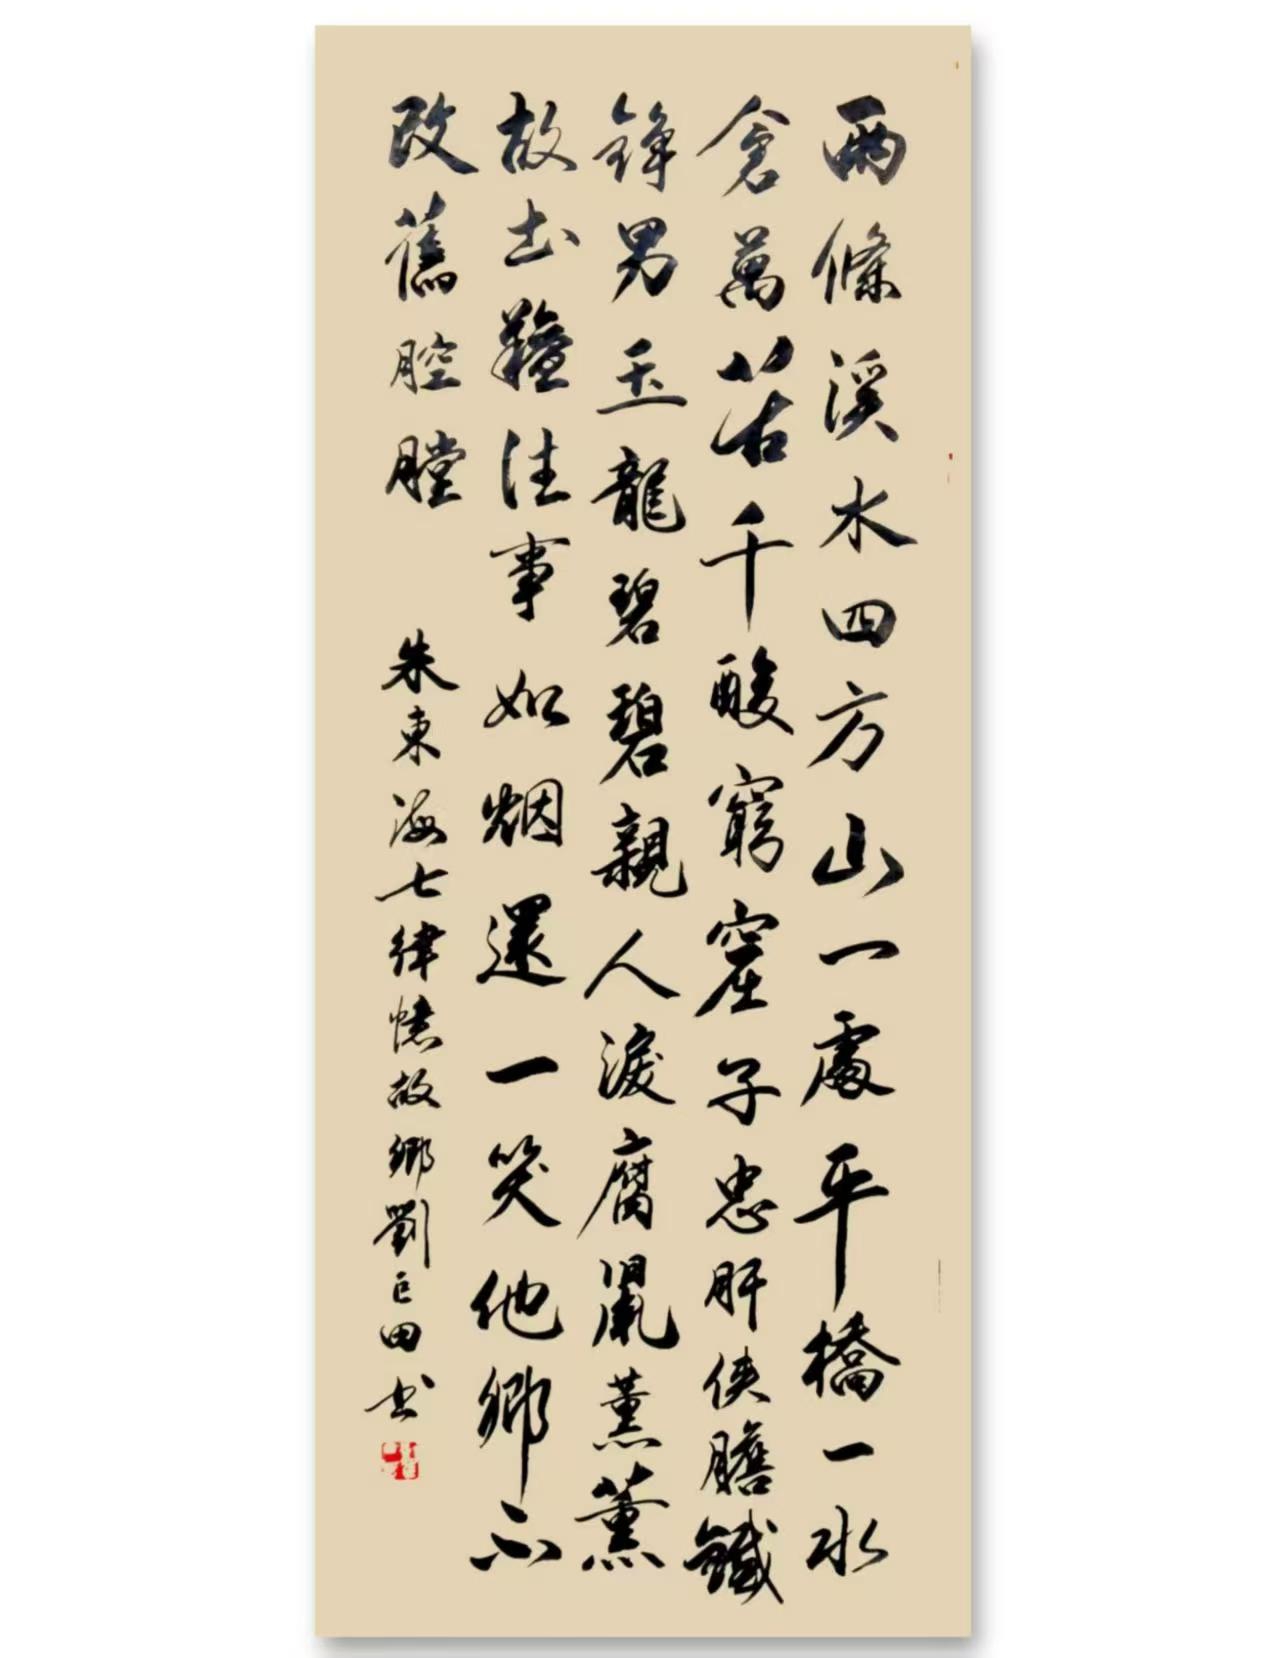 兩條溪水四方山一處平橋一水
倉萬苦千酸窮窟子忠肝俠膽鐵
錚男玉龍碧碧親人淚腐鼠薰薰
故土羶往事如烟還一笑他鄉不
改舊腔膛
朱東海七律憶故鄉劉巨田书